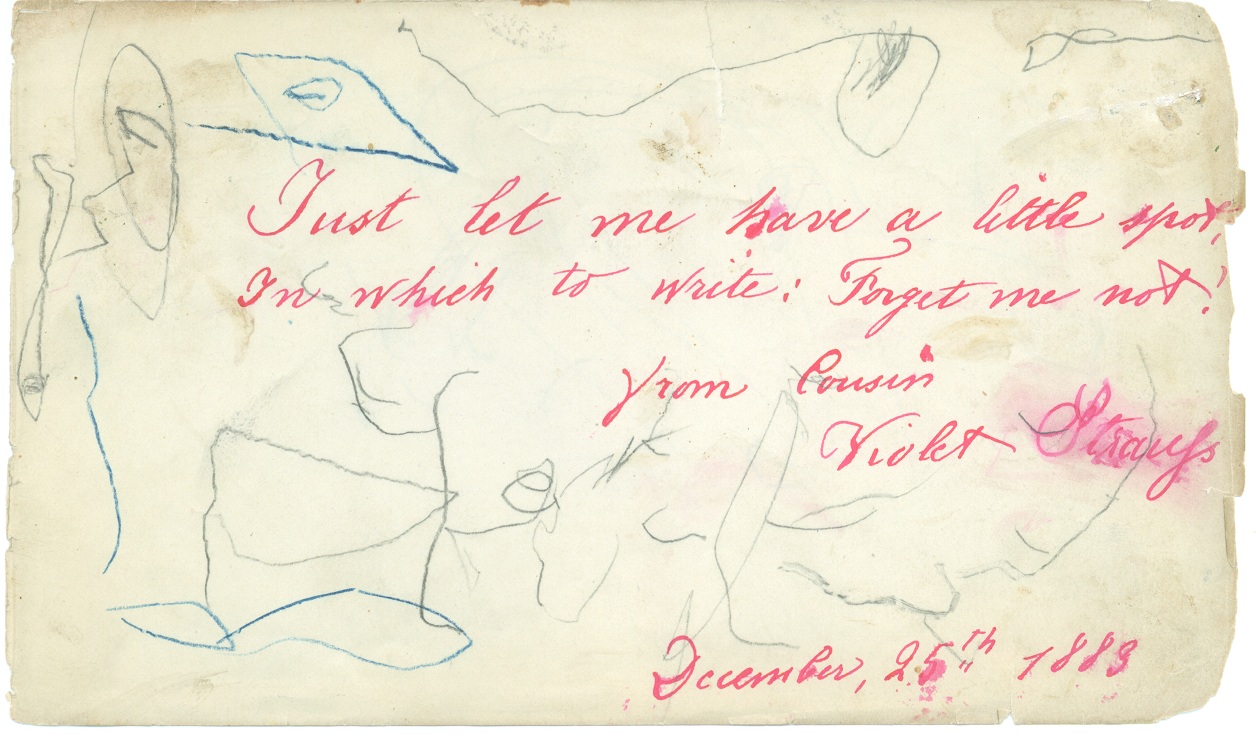 Just let me have a little spot,
In which to write: Forget me not!
from Cousin
Violet Strauss
December, 25th 1883